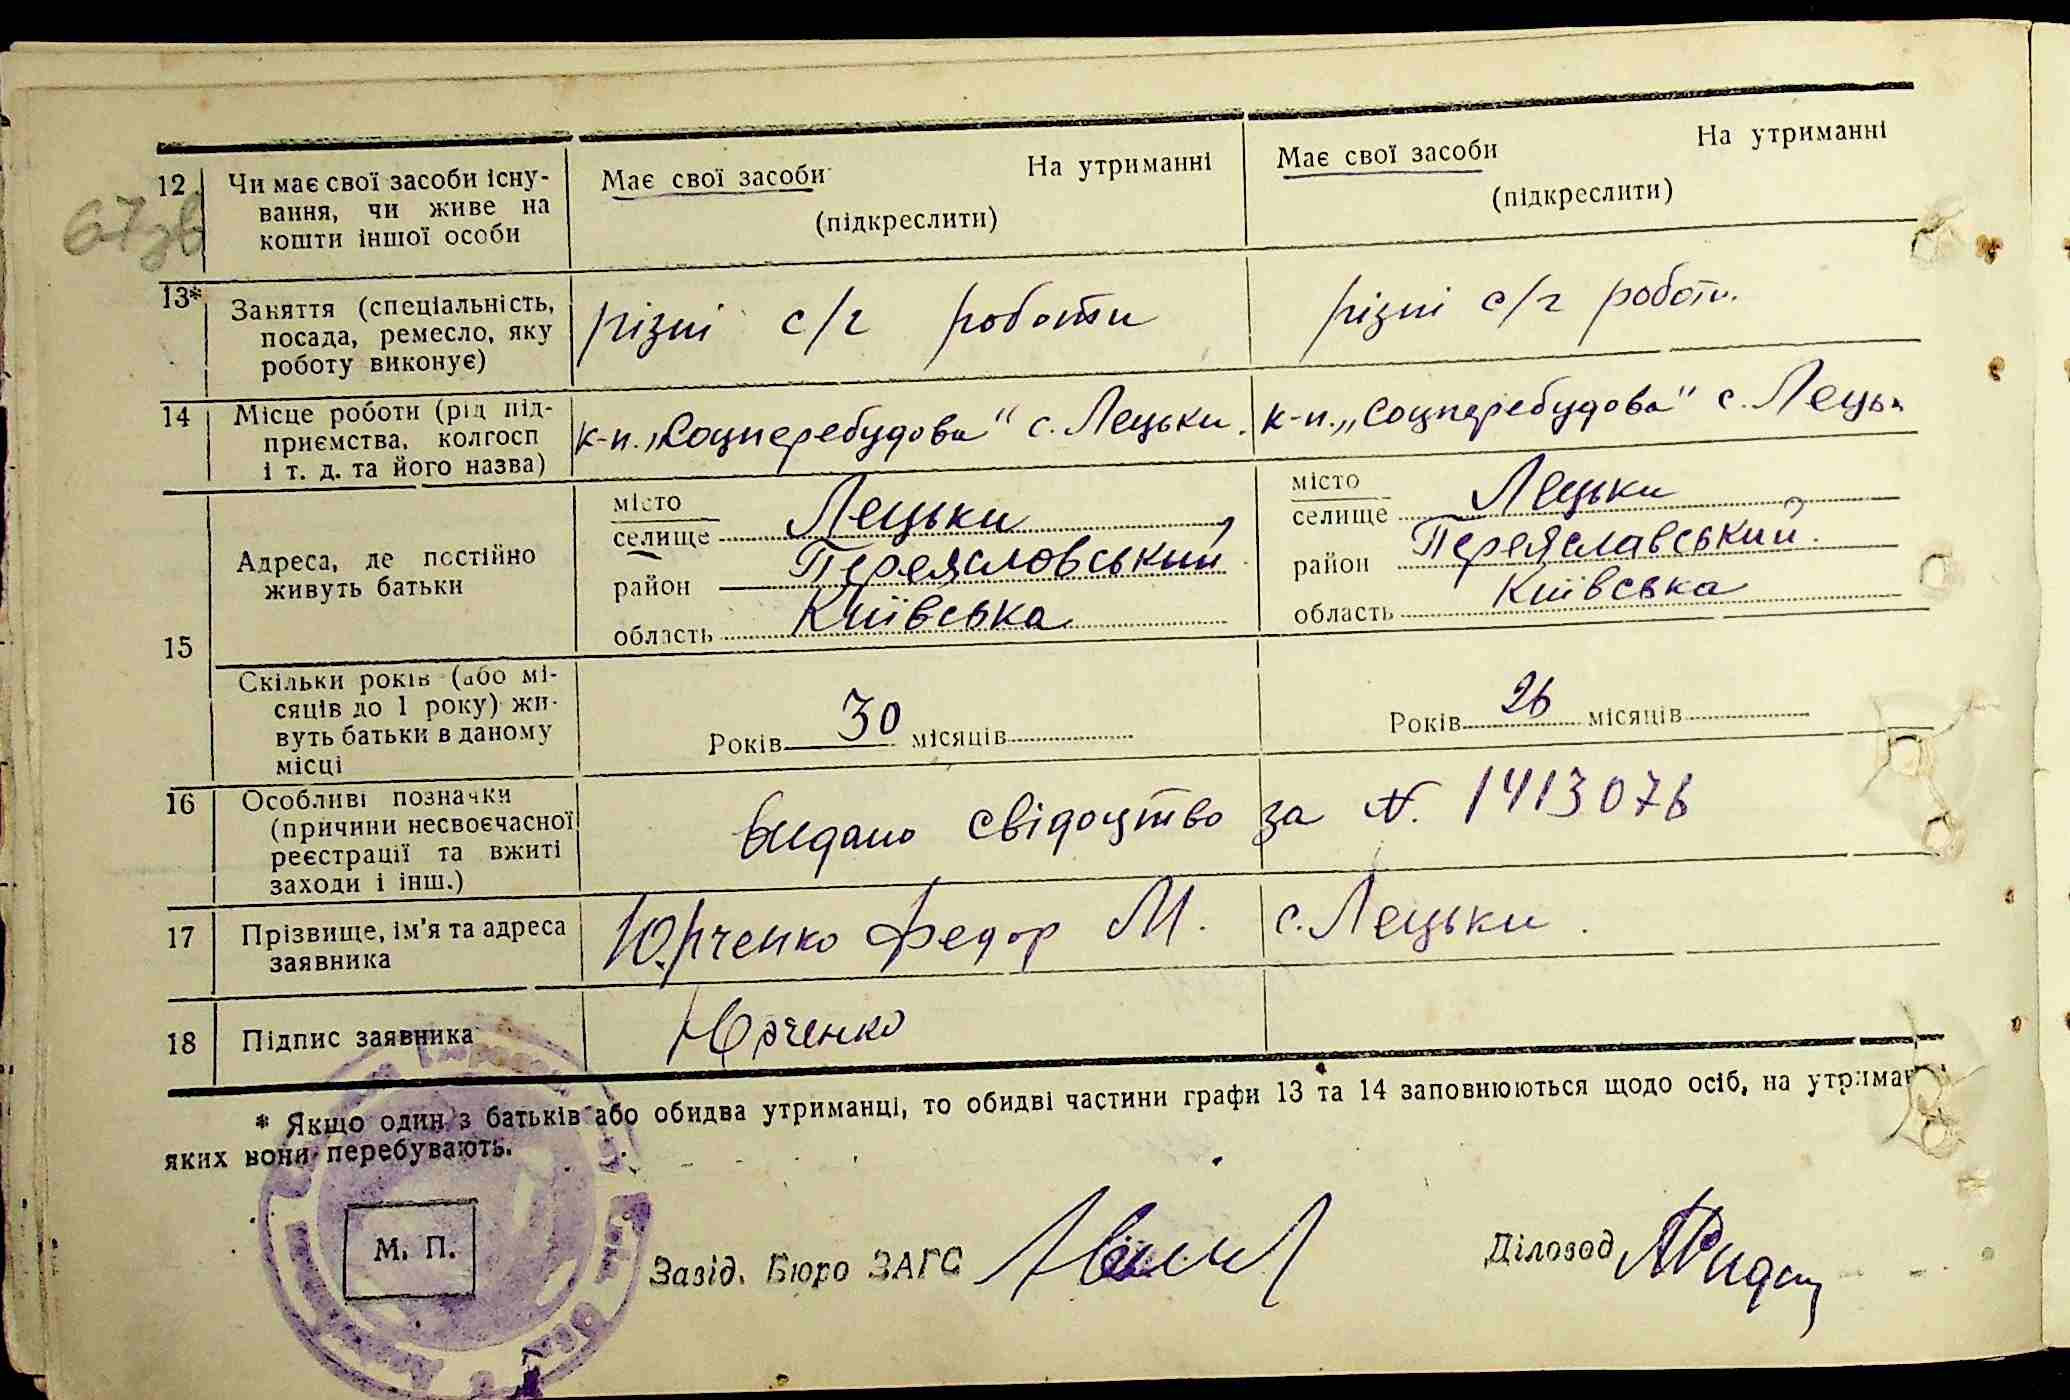 67зв
12 Чи має свої засоби існу-
вання, чи живе на
кошти іншої особи
Має свої засоби На утриманні
(підкреслити)
Має свої засоби На утриманні
(підкреслити)
13* Заняття (спеціальність,
посада, ремесло, яку
роботу виконує)
різні с/г роботи
різні с/г роботи.
14 Місце роботи (рід під-
приємства, колгосп
і т. д. та його назва)
к-п. „Соцперебудова" с. Лецьки.
к-п. „Соцперебудова" с. Лецьки
15 Адреса, де постійно
живуть батьки
місто
селище Лецьки
район Переясловський
область Київська
місто
селище Лецьки
район Переяславський
область Київська
Скільки років (або мі-
сяців до 1 року) жи-
вуть батьки в даному
місці
Років 30 місяців
Років 26 місяців
16 Особливі позначки
(причини несвоєчасної
реєстрації та вжиті
заходи і інш.)
видано свідоцтво за N. 1413076
17 Прізвище, ім'я та адреса
заявника
Юрченко Федор М. с. Лецьки.
18 Підпис заявника
Юрченко
* Якщо один з батьків або обидва утриманці, то обидві частини графи 13 та 14 заповнюються щодо осіб, на утриман
яких вони перебувають.
М. П.
Завід. Бюро ЗАГС
Діловод